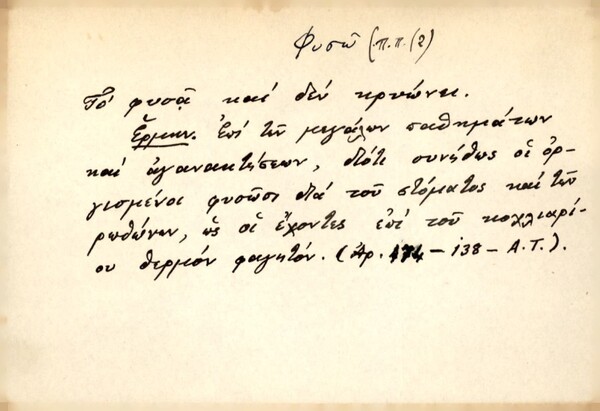 Φυσῶ (π.π. (2)
Τὸ φυσᾷ καὶ δὲν κρυώνει.
Ἑρμην. Ἐπὶ τῶν μεγάλων παθημάτων
καὶ ἀγανακτήσεων, διότι συνήθως οἱ ὀρ-
γισμένοι φυσῶσι διὰ τοῦ στόματος καὶ τῶν
ρωθώνων, ὡς οἱ ἔχοντες ἐπὶ τοῦ κοχλιαρί-
ου θερμὸν φαγητόν. (Ἀρ. 474 – 138 – Α.Τ.).